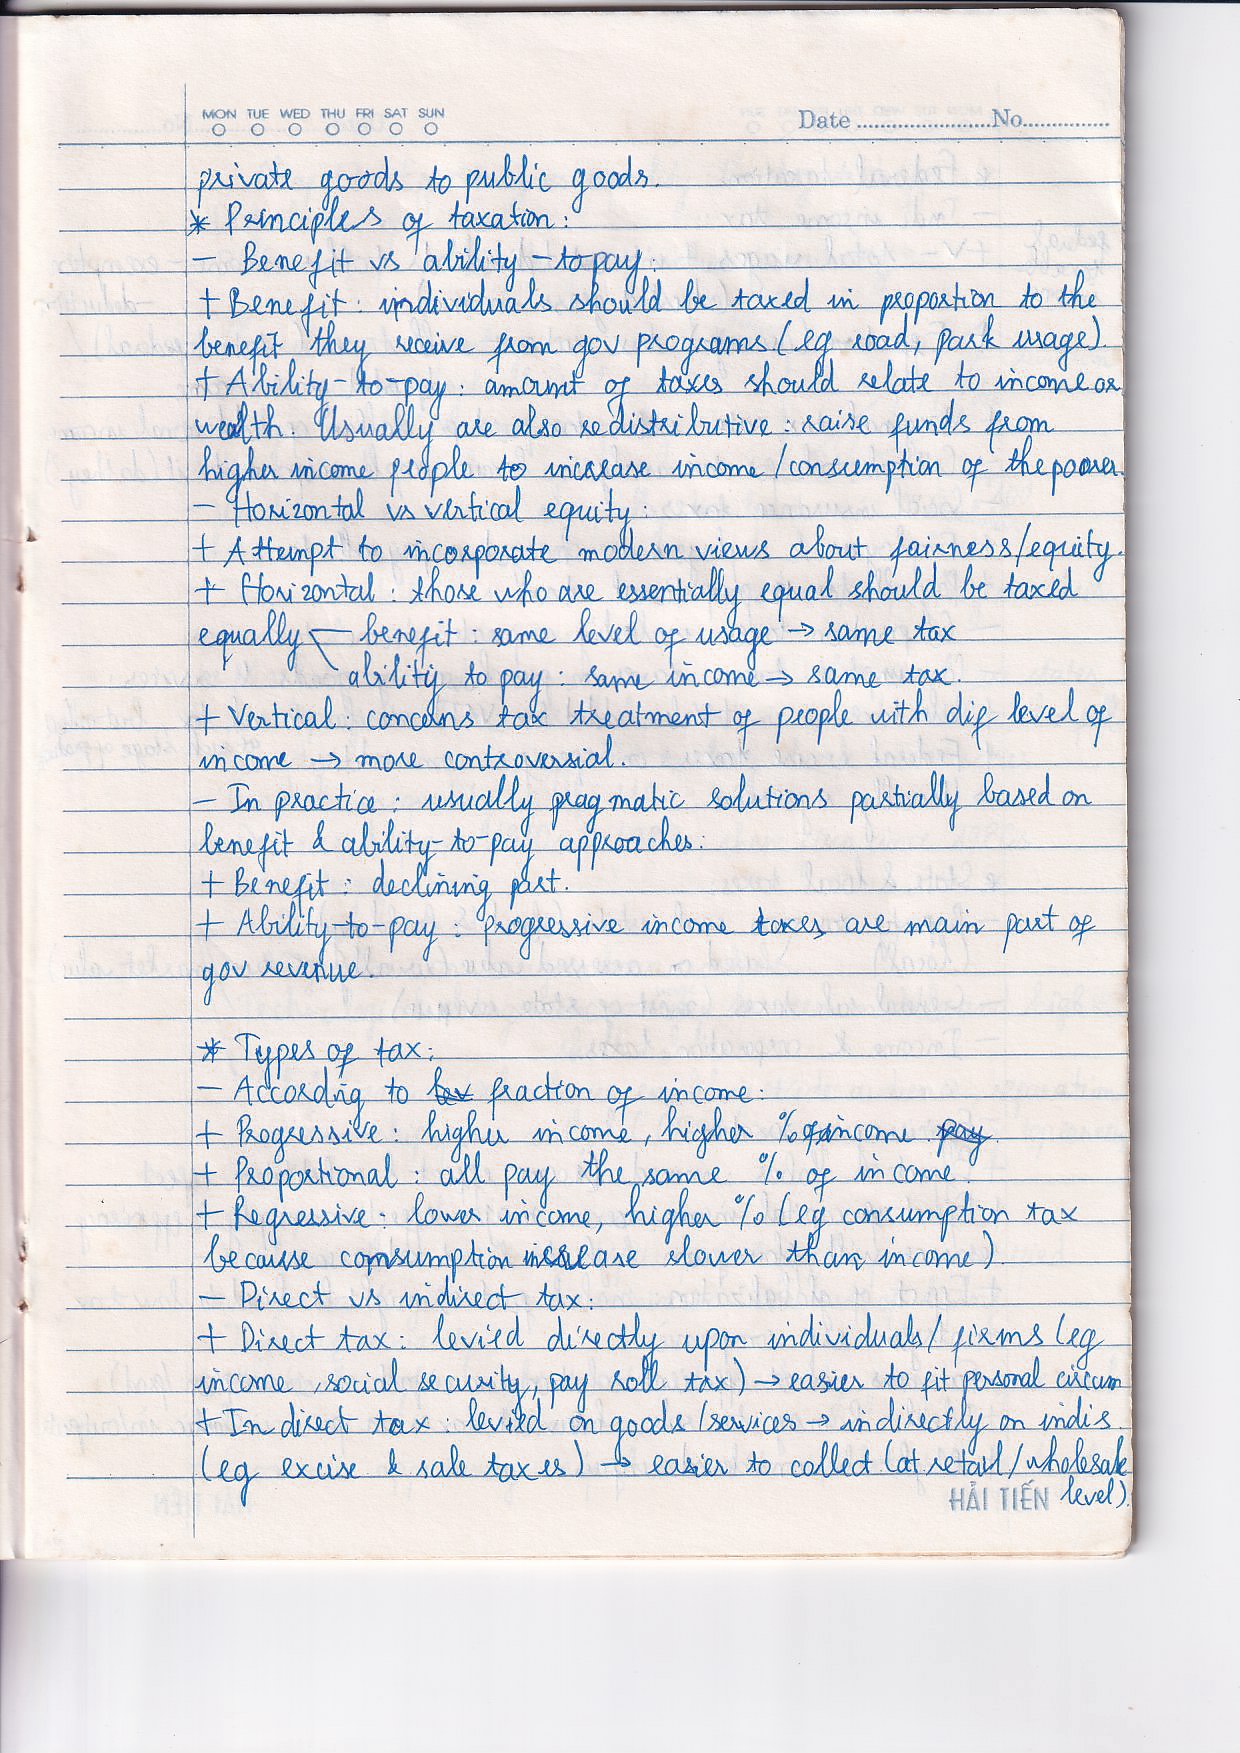 MON TUE WED THU FRI SAT SUN
Date ........................No...............
private goods to public goods.
* Principles of taxation:
- Benefit vs ability-to pay:
+ Benefit: individuals should be taxed in proportion to the
benefit they receive from gov programs (eg road, park usage).
+ Ability-to-pay: amount of taxes should relate to income or
wealth. Usually are also redistributive: raise funds from
higher income people to increase income/consumption of the poorer.
- Horizontal vs vertical equity:
+ Attempt to incorporate modern views about fairness/equity.
+ Horizontal: those who are essentially equal should be taxed
equally benefit: same level of usage → same tax
ability to pay: same income → same tax.
+ Vertical: concerns tax treatment of people with dif level of
income → more controversial.
- In practice: usually pragmatic solutions partially based on
benefit & ability-to-pay approaches:
+ Benefit: declining part.
+ Ability-to-pay: progressive income taxes are main part of
gov revenue.
* Types of tax:
- According to fraction of income:
+ Progressive: higher income, higher % of income pay.
+ Proportional: all pay the same % of income.
+ Regressive: lower income, higher % (eg consumption tax
because consumption increase slower than income).
- Direct vs indirect tax:
+ Direct tax: levied directly upon individuals/firms (eg
income, social security, pay roll tax) → easier to fit personal circum
+ Indirect tax: levied on goods/services → indirectly on indis.
(eg excise & sale taxes) → easier to collect (at retail/wholesale
level).
HẢI TIẾN